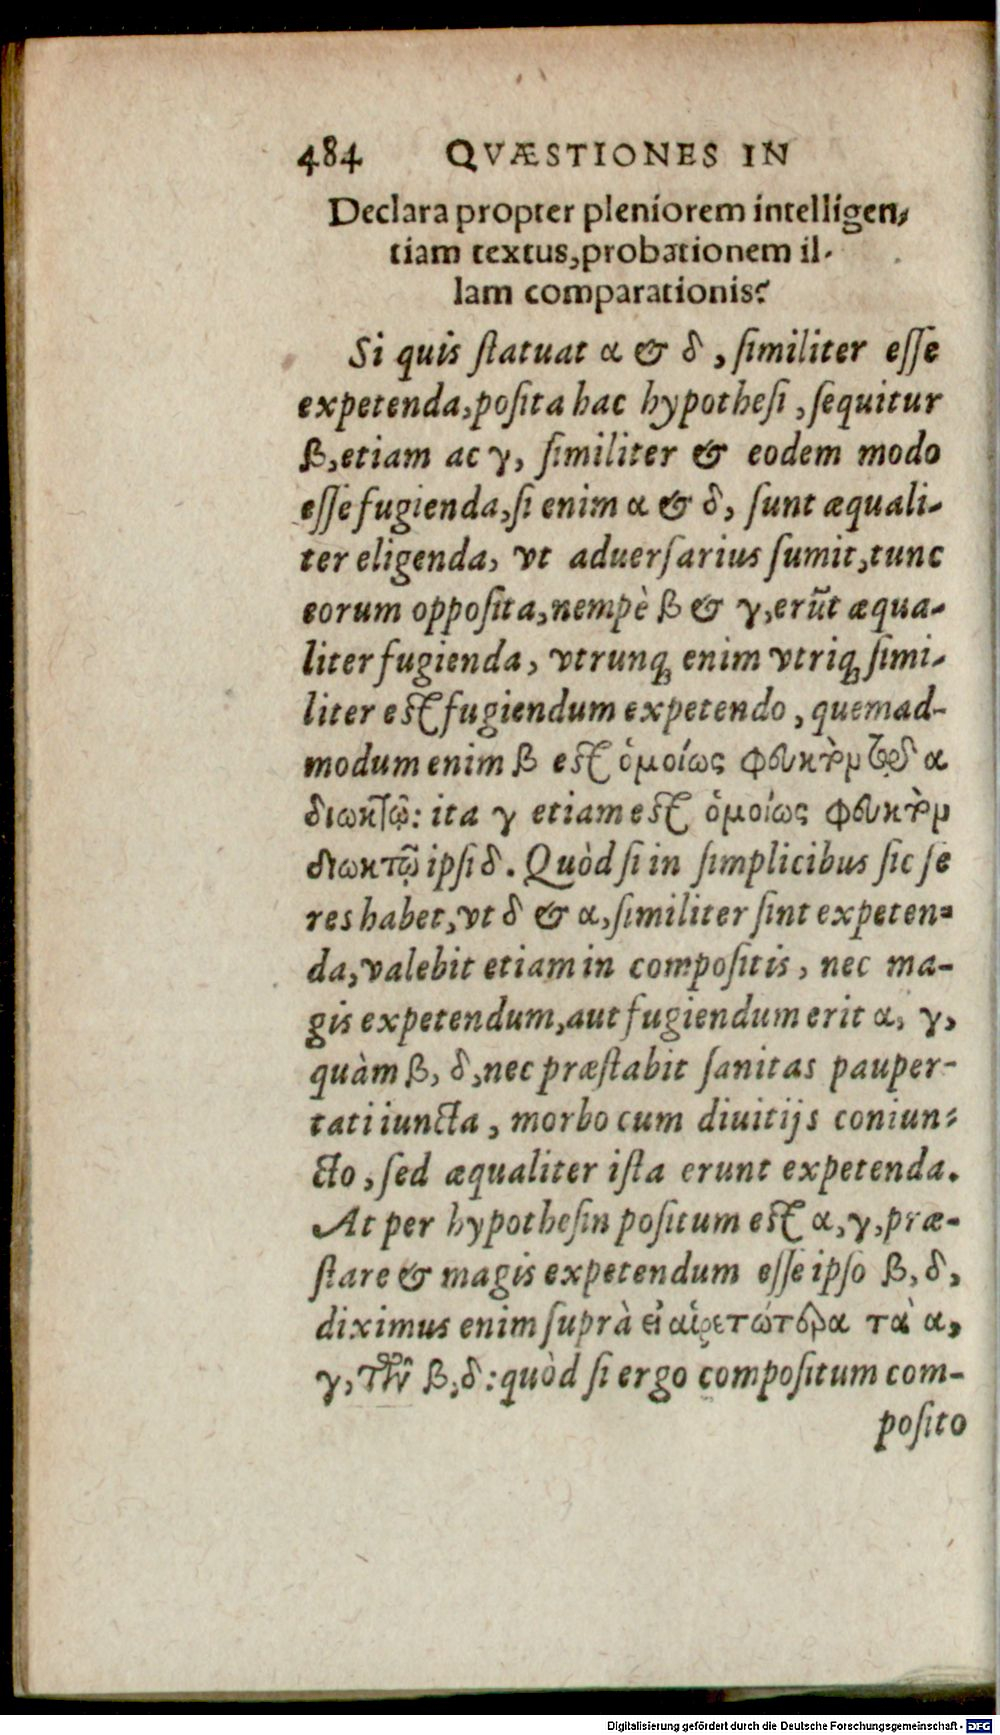 484 QVÆSTIONES IN
Declara propter pleniorem intelligen-
tiam textus, probationem il-
lam comparationis?
Si quis ſtatuat α & δ, ſimiliter eſſe
expetenda, poſita hac hypotheſi, ſequitur
β, etiam ac γ, ſimiliter & eodem modo
eſſe fugienda, ſi enim α & δ, ſunt æquali-
ter eligenda, vt aduerſarius ſumit, tunc
eorum oppoſita, nempè β & γ, erũt æqua-
liter fugienda, vtrunq; enim vtriq; ſimi-
liter eſt fugiendum expetendo, quemad-
modum enim β eſt ὁμοίως φευκτὸν τῷ α
διωκτῷ: ita γ etiam eſt ὁμοίως φευκτὸν
διωκτῷ ipſi δ. Quòd ſi in ſimplicibus ſic ſe
res habet, vt δ & α, ſimiliter ſint expeten-
da, valebit etiam in compoſitis, nec ma-
gis expetendum, aut fugiendum erit α, γ,
quàm β, δ, nec præſtabit ſanitas pauper-
tati iuncta, morbo cum diuitijs coniun-
cto, ſed æqualiter iſta erunt expetenda.
At per hypotheſin poſitum eſt α, γ, præ-
ſtare & magis expetendum eſſe ipſo β, δ,
diximus enim ſuprà εἰ αἱρετώτερα τὰ α,
γ, τῶν β, δ: quòd ſi ergo compoſitum com-
poſito
Digitalisierung gefördert durch die Deutsche Forschungsgemeinschaft - DFG